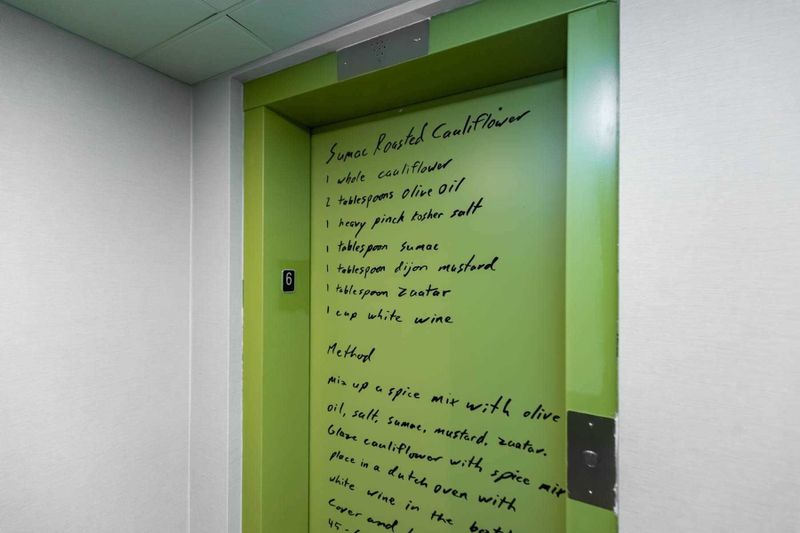 Sumac Roasted Cauliflower
1 whole cauliflower
2 tablespoons Olive Oil
1 heavy pinch kosher salt
1 tablespoon sumac
1 tablespoon dijon mustard
1 tablespoon zaatar
1 cup white wine
6
Method
mix up a spice mix with olive
oil, salt, sumac, mustard, zaatar.
Glaze cauliflower with spice mix
place in a dutch oven with
white wine in the
Cover and
45-